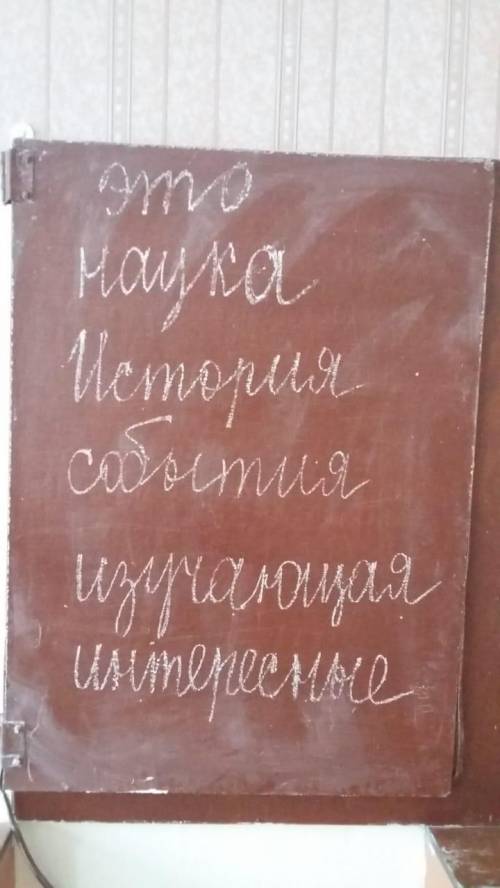 это
наука
История
события
изучающая
интересные